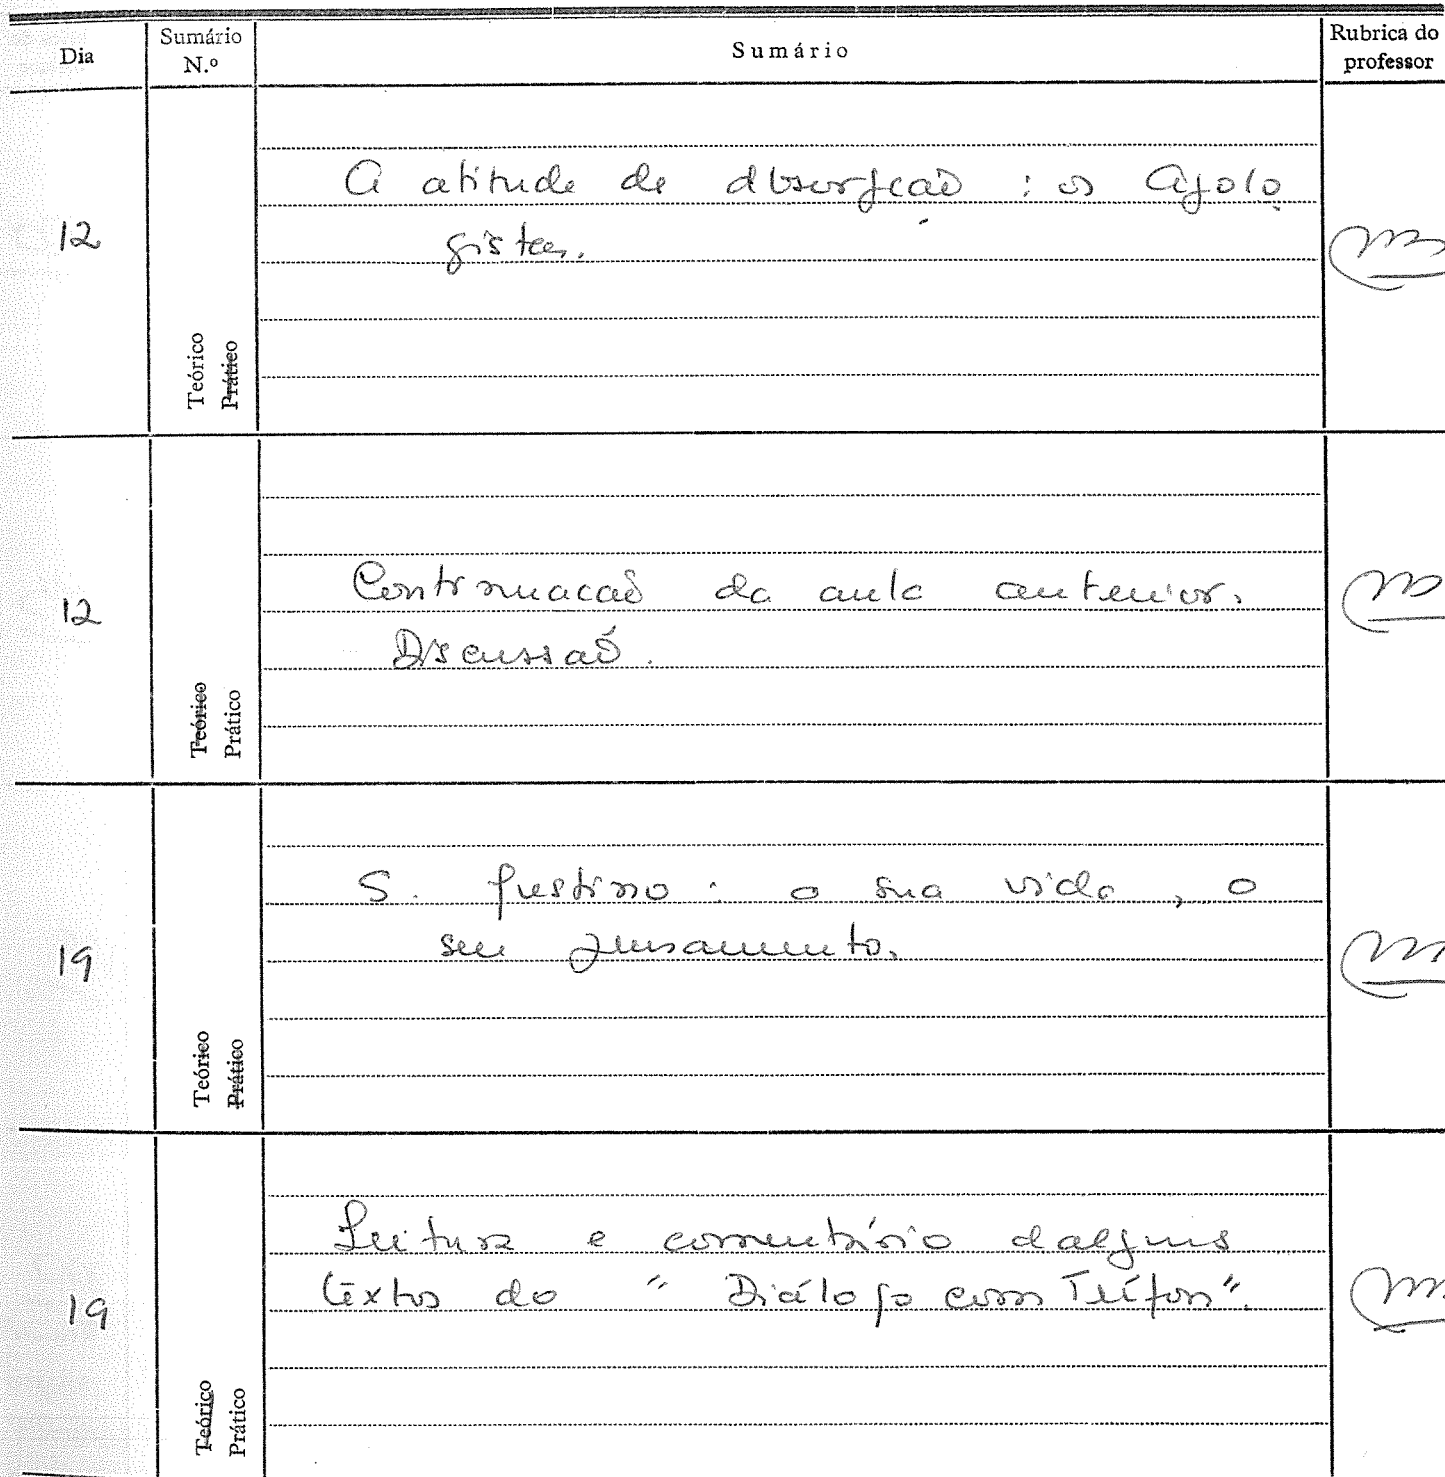 Dia
Sumário
N.º
Sumário
Rubrica do
professor
12
Teórico
Prático
A atitude de absorpção : os Apolo
gistas.
12
Teórico
Prático
Continuação da aula anterior.
Discussão.
19
Teórico
Prático
S. Justino : a sua vida, o
seu pensamento.
19
Teórico
Prático
Leitura e comentário dalguns
textos do "Diálogo com Trífon".